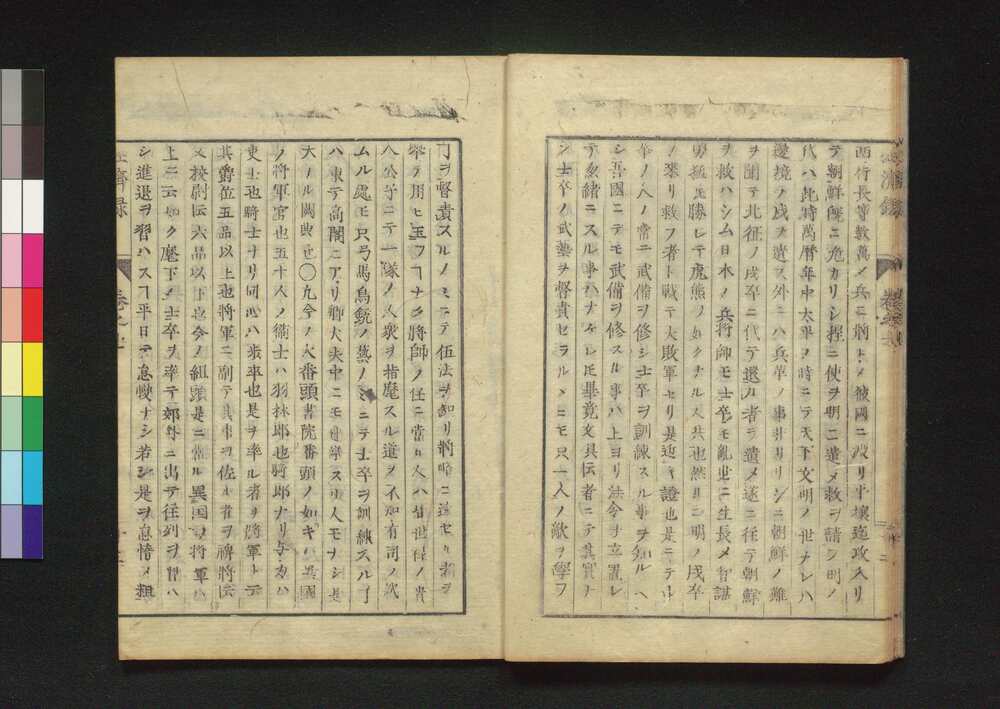 西行長等數萬ノ兵ニ朝ト〆彼國ニ渡リ平壤迄攻入リ
テ朝鮮既ニ危カリシ程ニ使ヲ明ニ遣〆救ヲ請シ明ノ
代ハ此時萬暦年中太平ノ時ニテ天下文明ノ世ナレハ
邊境ノ戍ヲ遣ス外ニハ兵革ノ事ナカリシニ朝鮮ノ難
ヲ聞テ北征ノ戍卒ニ代テ還ル者ヲ遣〆遂ニ往テ朝鮮
ヲ救ハシム日本ノ兵將師モ士卒モ亂世ニ生長〆智謀
勇猛ニ勝レテ虎熊ノ如クナル人共也然ルニ明ノ戍卒
ノ來リ救フ者ト戰テ大敗軍セリ是近キ證也是ニテ
平ノ人ノ常ニ武備ヲ修シ士卒ヲ訓練スル事ヲ知ルヘ
シ吾國ニテモ武備ヲ修スル事ハ上ヨリ法令ヲ立置レ
テ嚴緒ニスル事ハナケレ𪜈畢竟文具伝者ニテ其實ナ
シ士卒ノ武藝ヲ督責セラルヽニモ只一人ノ敵ヲ學フ
經濟録
卷之
ヿヲ督責スルノミニテ伍法ヲ知リ將略ニ達セル者ヲ
擧テ用ヒ玉フヿナク將師ノ任ニ當ル人ハ皆世祿ノ貴
人公子ニテ一隊ノ人衆ヲ指麾スル道ヲ不知有司ノ次
ムル處モ只弓馬鳥銃ノ藝ノミニテ士卒ヲ訓練スルヿ
ハ東テ高閣ニアリ卿大夫中ニモ
大ナル闕典也〇九今ノ大番頭書院番頭ノ如キハ異國
ノ將軍官也五十人ノ衞士ハ羽林郎也騎郎ナリ与力ハ
吏士也騎士ナリ同心ハ歩卒也是ヲ率ル者ヲ將軍ト云
其爵位五品以上也將軍ニ副テ其事ヲ佐ル者ヲ裨將伝
又校尉伝六品以下也今ノ組頭是ニ當ル異國ノ將軍ハ
上ニ云如ク麾下ノ士卒ヲ率テ郊外ニ出テ行列ヲ習ハ
シ進退ヲ習ハスヿ平日テ怠慢ナシ若シ是ヲ怠惰〆粗